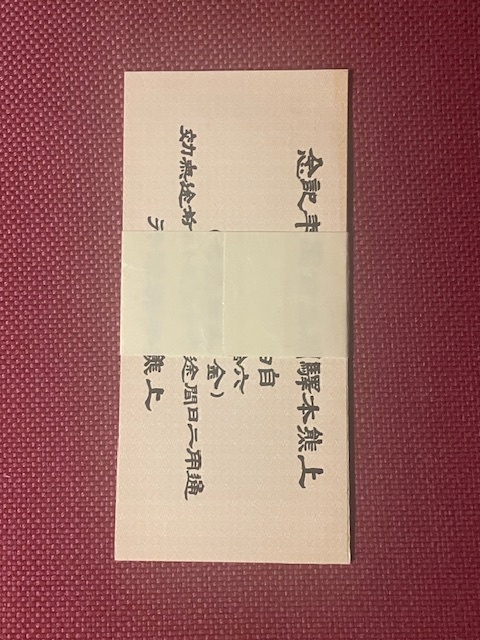 上熊本驛 記念
自
六
金)
通用二日間途 前途無効
上熊 ラ